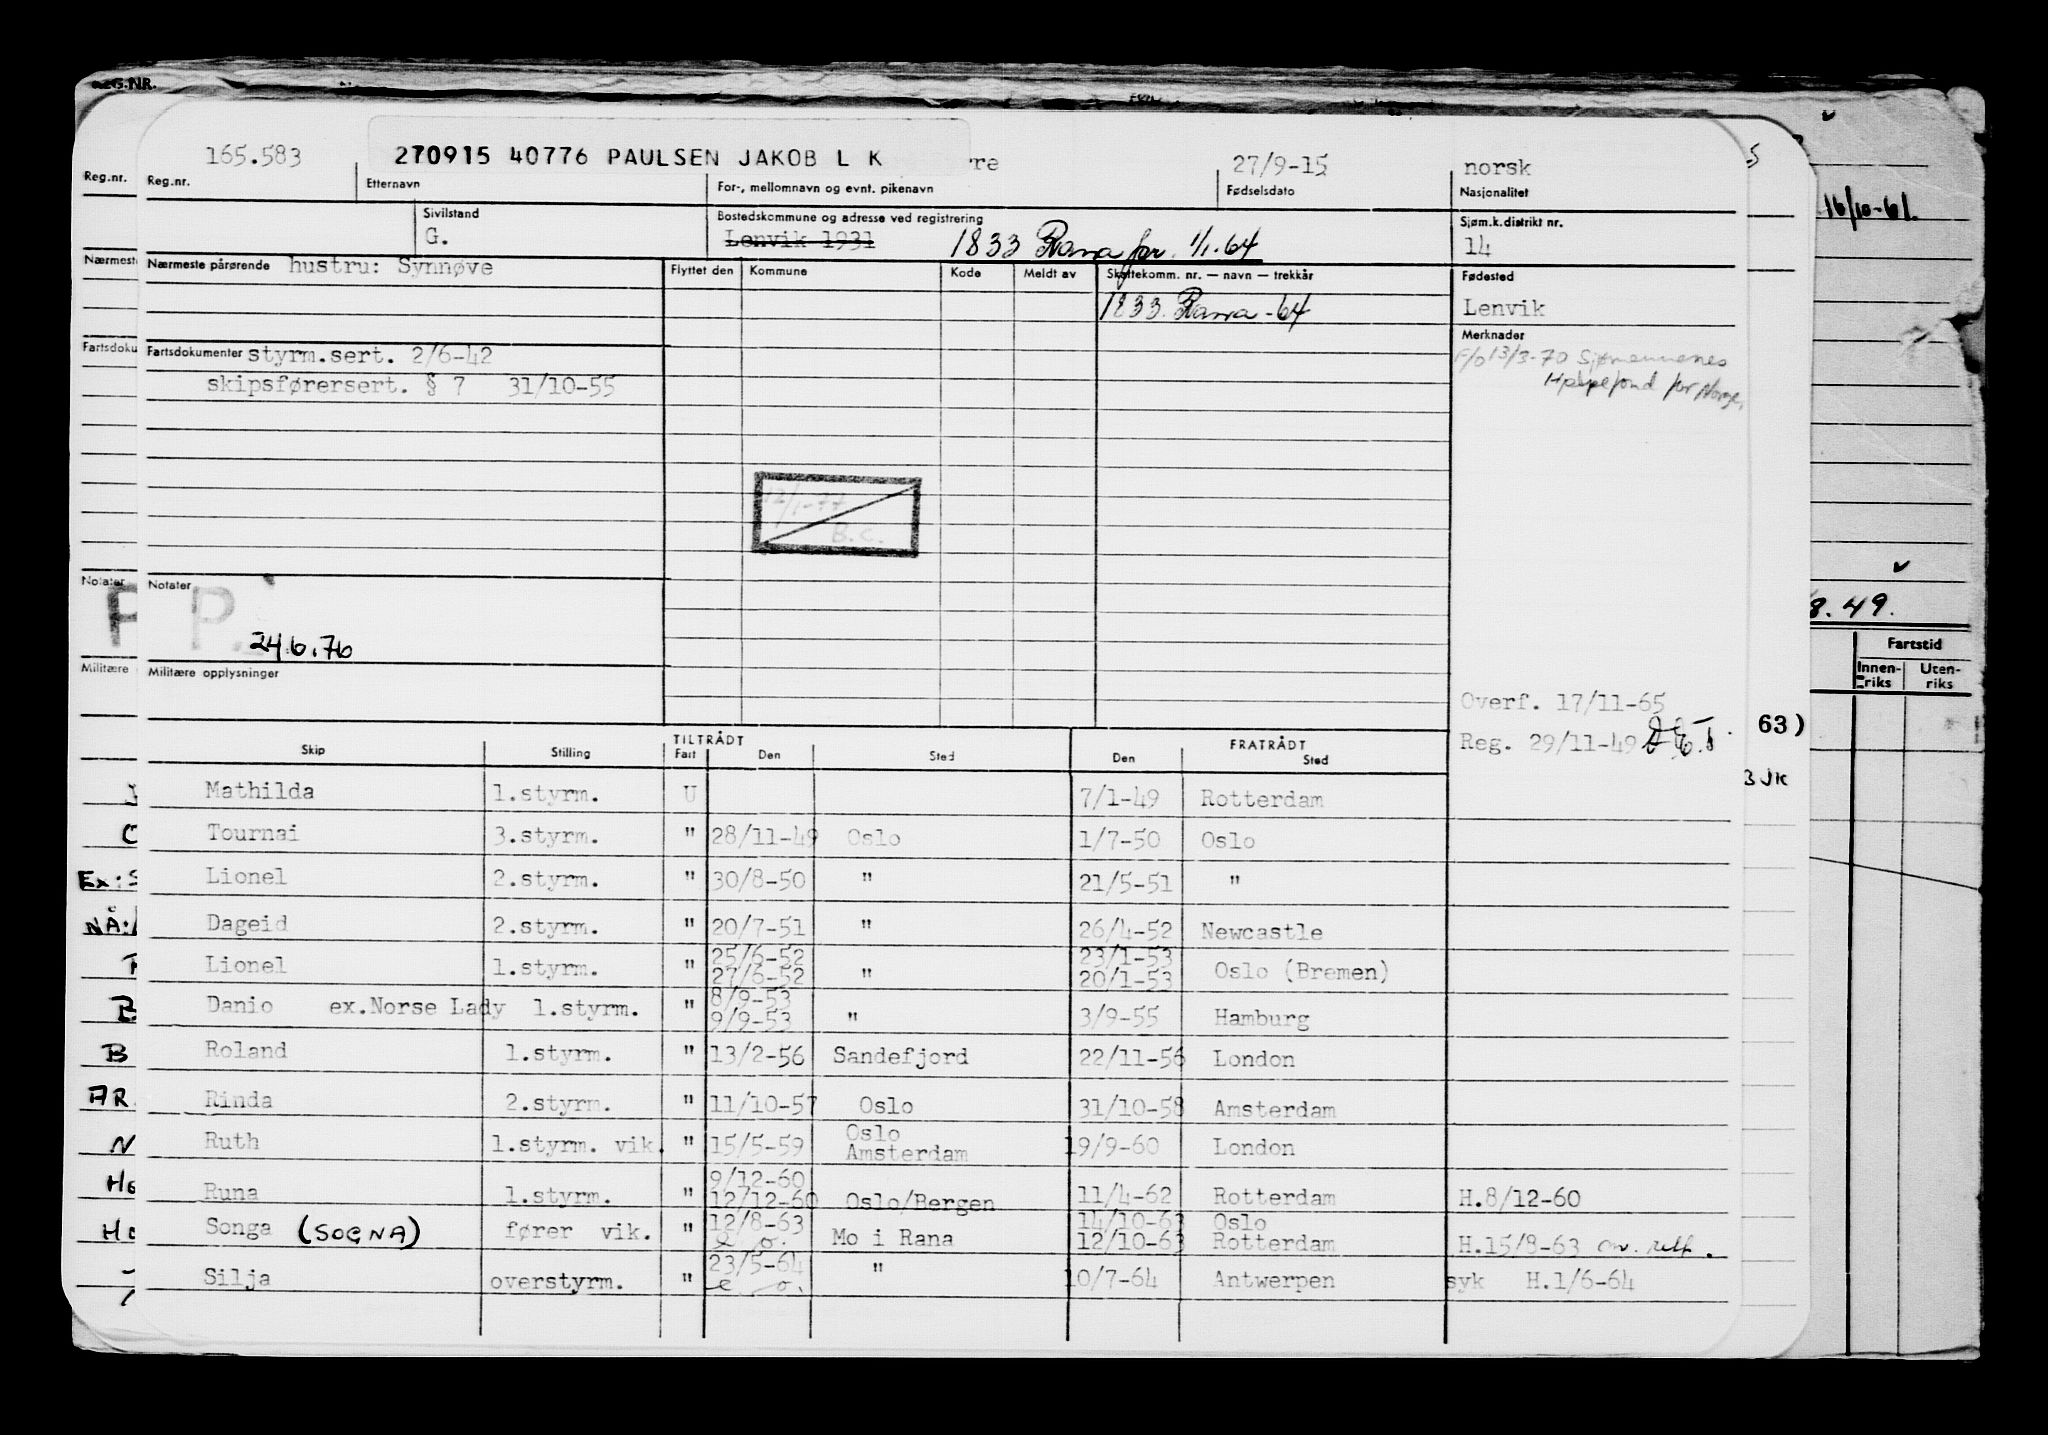 G.NR.
165.583 270915 40776 PAULSEN JAKOB L K re 27/9-15 norsk
Reg.nr. Reg.nr. Etternavn For-, mellomnavn og evnt. pikenavn Fødselsdato Nasjonalitet
16/10-61.
Sivilstand Bostedskommune og adresse ved registrering Sjøm.k.distrikt nr.
G. Lenvik 1931 1833 Rana før 1/1.64 14
Nærmest Nærmeste pårørende hustru: Synnøve Flyttet den Kommune Kode Meldt av Skattekomm. nr. — navn — trekkår Fødested
1833. Rana -64 Lenvik
Merknader
Fartsdoku Fartsdokumenter styrm.sert. 2/6-42 F/o 13/3-70 Sjømennenes
skipsførersert. § 7 31/10-55 Hjelpefond for Norge,
12/1-77
B.C.
Notater Notater
P P.
8.49.
24.6.76
Fartstid
Innen-riks Uten-riks
Militære Militære opplysninger
Overf. 17/11-65
Reg. 29/11-49 63)
TILTRÅDT FRATRÅDT
Skip Stilling Fart Den Sted Den Sted
3 JK
Mathilda 1.styrm. U 7/1-49 Rotterdam
Tournai 3.styrm. " 28/11-49 Oslo 1/7-50 Oslo
Ex: S Lionel 2.styrm. " 30/8-50 " 21/5-51 "
NÅ: Dageid 2.styrm. " 20/7-51 " 26/4-52 Newcastle
25/6-52 23/1-53
Lionel 1.styrm. " 27/6-52 " 20/1-53 Oslo (Bremen)
8/9-53
Danio ex.Norse Lady 1.styrm. " 9/9-53 " 3/9-55 Hamburg
B Roland 1.styrm. " 13/2-56 Sandefjord 22/11-56 London
AR. Rinda 2.styrm. " 11/10-57 Oslo 31/10-58 Amsterdam
Oslo
N Ruth 1.styrm. vik. " 15/5-59 Amsterdam 19/9-60 London
9/12-60
Runa 1.styrm. " 12/12-60 Oslo/Bergen 11/4-62 Rotterdam H.8/12-60
12/8-63 14/10-63 Oslo
Songa (SOGNA) fører vik. " e o. Mo i Rana 12/10-63 Rotterdam H.15/8-63
23/5-64
Silja overstyrm. " e o. " 10/7-64 Antwerpen syk H.1/6-64